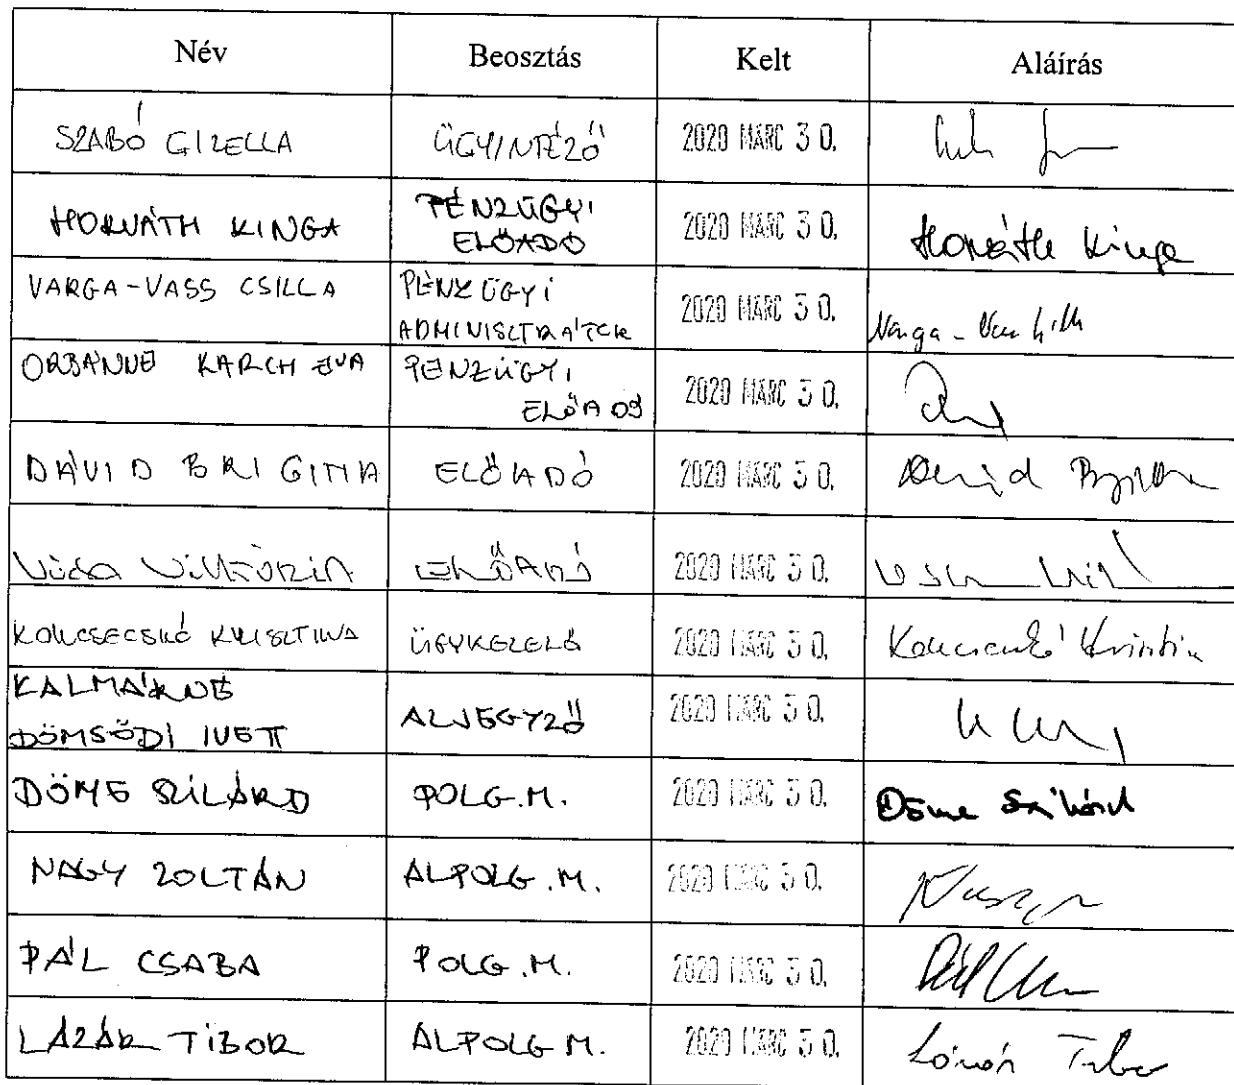 Név Beosztás Kelt Aláírás
SZABÓ GIZELLA ÜGYINTÉZŐ 2020 MÁRC 30.
HORVÁTH KINGA PÉNZÜGYI ELŐADÓ 2020 MÁRC 30. Horváth Kinga
VARGA-VASS CSILLA PÉNZÜGYI ADMINISZTRÁTOR 2020 MÁRC 30. Varga-Vass Csilla
ORBÁNNÉ KARCH ÉVA PÉNZÜGYI ELŐADÓ 2020 MÁRC 30.
DÁVID BRIGITTA ELŐADÓ 2020 MÁRC 30. Dávid Brigitta
Vida Viktória ELŐADÓ 2020 MÁRC 30.
KRISZTINA ÜGYKEZELŐ 2020 MÁRC 30.
KALMÁRNÉ DÖMSÖDI IVETT ALJEGYZŐ 2020 MÁRC 30.
DÖME SZILÁRD POLG.M. 2020 MÁRC 30. Döme Szilárd
NAGY ZOLTÁN ALPOLG.M. 2020 MÁRC 30.
PÁL CSABA POLG.M. 2020 MÁRC 30.
LÁZÁR TIBOR ALPOLG M. 2020 MÁRC 30. Lázár Tibor